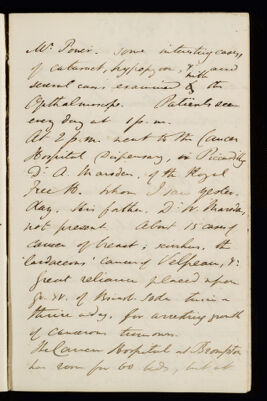 Mr. Power. some interesting cases
of cataract, hypopyon, & and
several cases examined with the
Opthalmoscope. Patients seen
every day at 1 p.m.
At 2 p.m. went to the Cancer
Hospital Dispensary, in Piccadilly
Dr. A. Marsden, of the Royal
Free H. whom I saw yester-
day. His father, Dr. W. Marsden,
not present. About 15 cases of
cancer of breast; scirrhus, the
"lardaceous" Cancer of Velpeau, &c
Great reliance placed upon
gr. of Bromide twice or
thrice a day, for arresting growth
of cancerous tumours.
The Cancer Hospital at Brompton
has room for 60 beds, but at